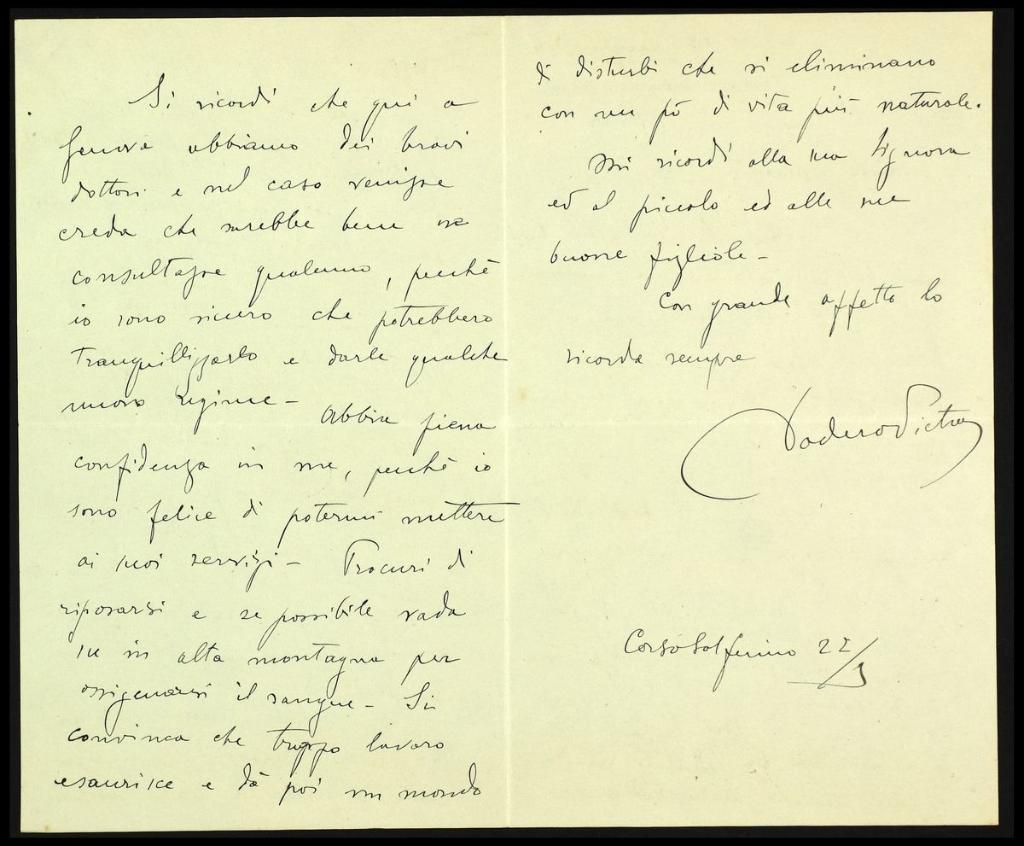 Si ricordi che qui a
Genova abbiamo dei bravi
dottori e nel caso venisse
creda che sarebbe bene ne
consultasse qualcuno, perchè
io sono sicuro che potrebbero
tranquillizzarlo e darle qualche
nuovo regime -
Abbia piena
confidenza in me, perchè io
sono felice di potermi mettere
ai suoi servizi - Procuri di
riposarsi e se possibile vada
su in alta montagna per
ossigenarsi il sangue - Si
convinca che troppo lavoro
esaurisce e dà poi un mondo
di disturbi che si eliminano
con un pò di vita più naturale.
Mi ricordi alla sua Signora
ed al piccolo ed alle sue
buone figliole -
Con grande affetto lo
ricorda sempre
Pietro
Corso Solferino 22/3